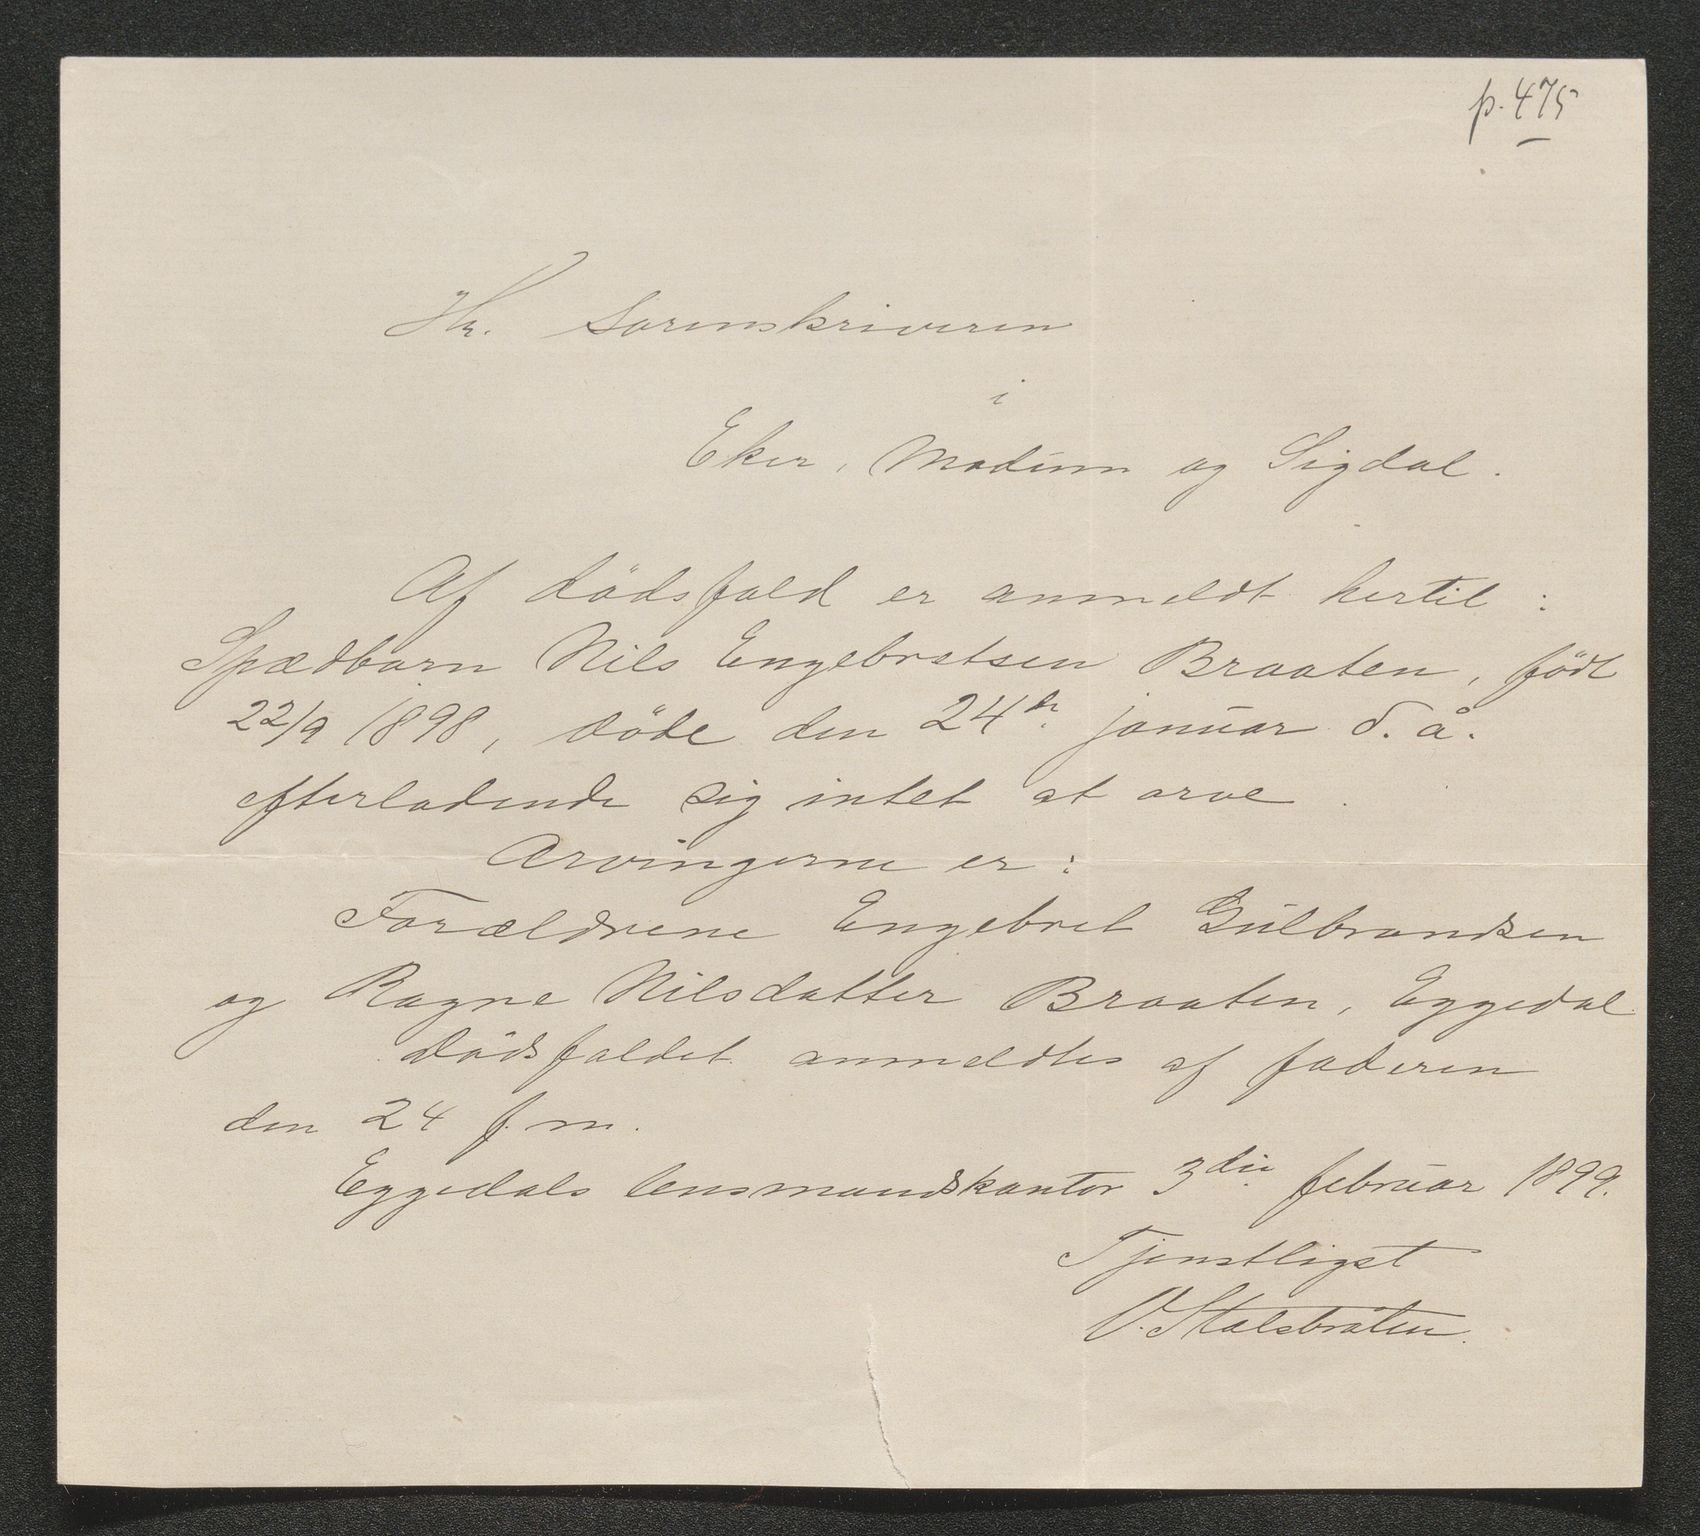 p. 475
Hr. Sorenskriveren
i
Eker, Modum og Sigdal.
Af dödsfald er anmeldt hertil:
Spædbarn Nils Engebretsen Braaten, födt
22/9 1898, döde den 24de januar d. å.
efterladende sig intet at arve.
Arvingerne er:
Forældrene Engebret Gulbrandsen
og Ragne Nilsdatter Braaten, Eggedal.
Dödsfaldet anmeldtes af faderen
den 24 f. m.
Eggedals lensmandskontor 3die februar 1899.
Tjenstligst
O. Stalsbråten.